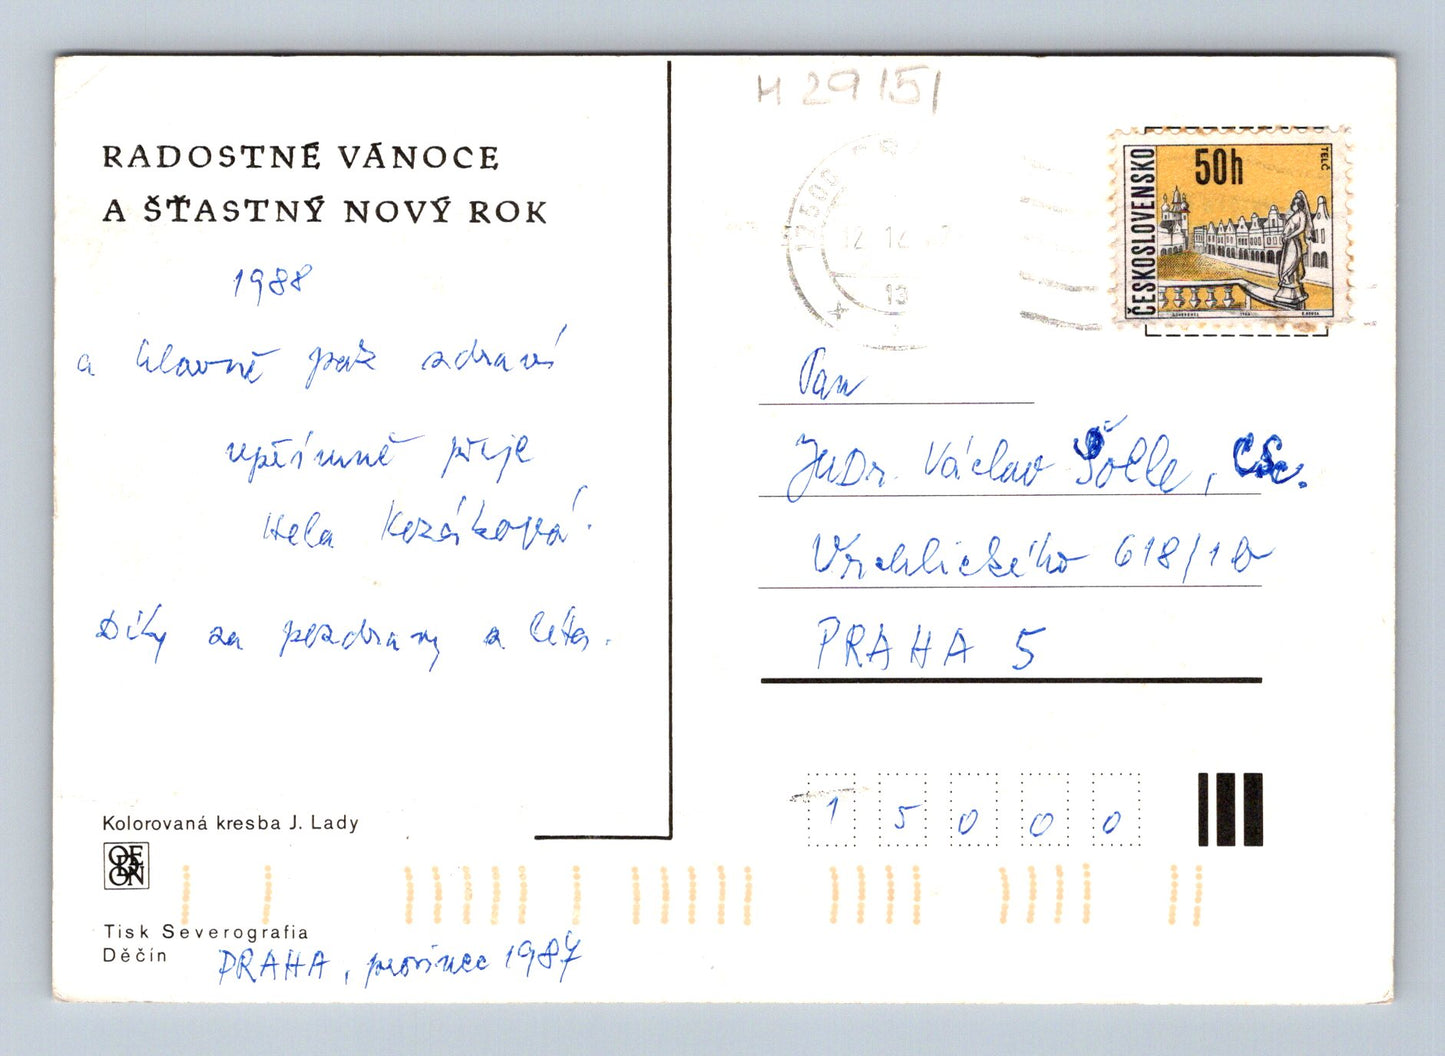 H 29151
RADOSTNÉ VÁNOCE
A ŠŤASTNÝ NOVÝ ROK
1988
a hlavně pak zdraví
upřímně přeje
Hela Kozáková.
Díky za pozdravy z léta.
Kolorovaná kresba J. Lady
ODEON
Tisk Severografia
Děčín
PRAHA, prosinec 1987
ČESKOSLOVENSKO
50h
TELČ
12.12
13
Pan
JuDr. Václav Šolle, CSc.
Vrchlického 618/10
PRAHA 5
15000